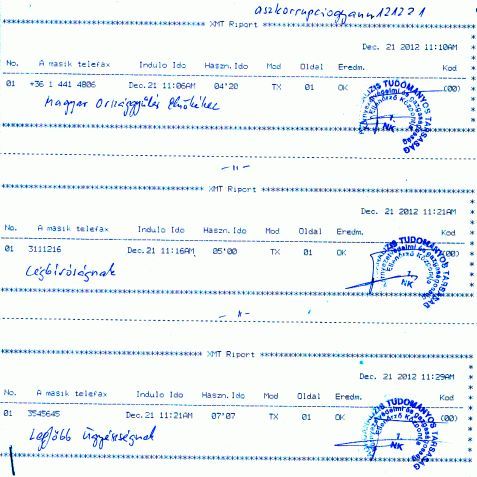 aszkorrupciogyanu121221
XMT Riport
Dec. 21 2012 11:10AM
No. A masik telefax Indulo Ido Haszn.Ido Mod Oldal Eredm. Kod
01 +36 1 441 4806 Dec.21 11:06AM 04'20 TX 01 OK (00)
Magyar Országgyűlés Elnökének
TUDOMÁNYOS TÁRSASÁG
Ellenőrző Központja
1.
NK
- 〃 -
XMT Riport
Dec. 21 2012 11:21AM
No. A masik telefax Indulo Ido Haszn.Ido Mod Oldal Eredm. Kod
01 3111216 Dec.21 11:16AM 05'00 TX 01 OK (00)
Légbíróságnak
TUDOMÁNYOS TÁRSASÁG
Ellenőrző Központja
1.
NK
- 〃 -
XMT Riport
Dec. 21 2012 11:29AM
No. A masik telefax Indulo Ido Haszn.Ido Mod Oldal Eredm. Kod
01 3545645 Dec.21 11:21AM 07'07 TX 01 OK (00)
Legfőbb Ügyészségnek
TUDOMÁNYOS TÁRSASÁG
Ellenőrző Központja
1.
NK